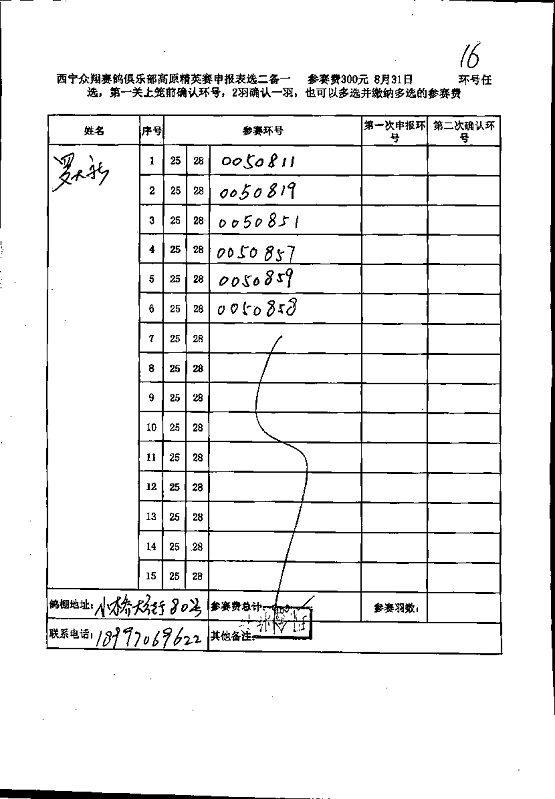 16
西宁众翔赛鸽俱乐部高原精英赛申报表选二备一 参赛费300元 8月31日 环号任
选，第一关上笼前确认环号，2羽确认一羽，也可以多选并缴纳多选的参赛费
姓名 序号 参赛环号 第一次申报环号 第二次确认环号
罗大新
1 25 28 0050811
2 25 28 0050819
3 25 28 0050851
4 25 28 0050857
5 25 28 0050859
6 25 28 0050858
7 25 28
8 25 28
9 25 28
10 25 28
11 25 28
12 25 28
13 25 28
14 25 28
15 25 28
鸽棚地址：小桥大街80号 参赛费总计： 参赛羽数：
联系电话：18997069622 其他备注：